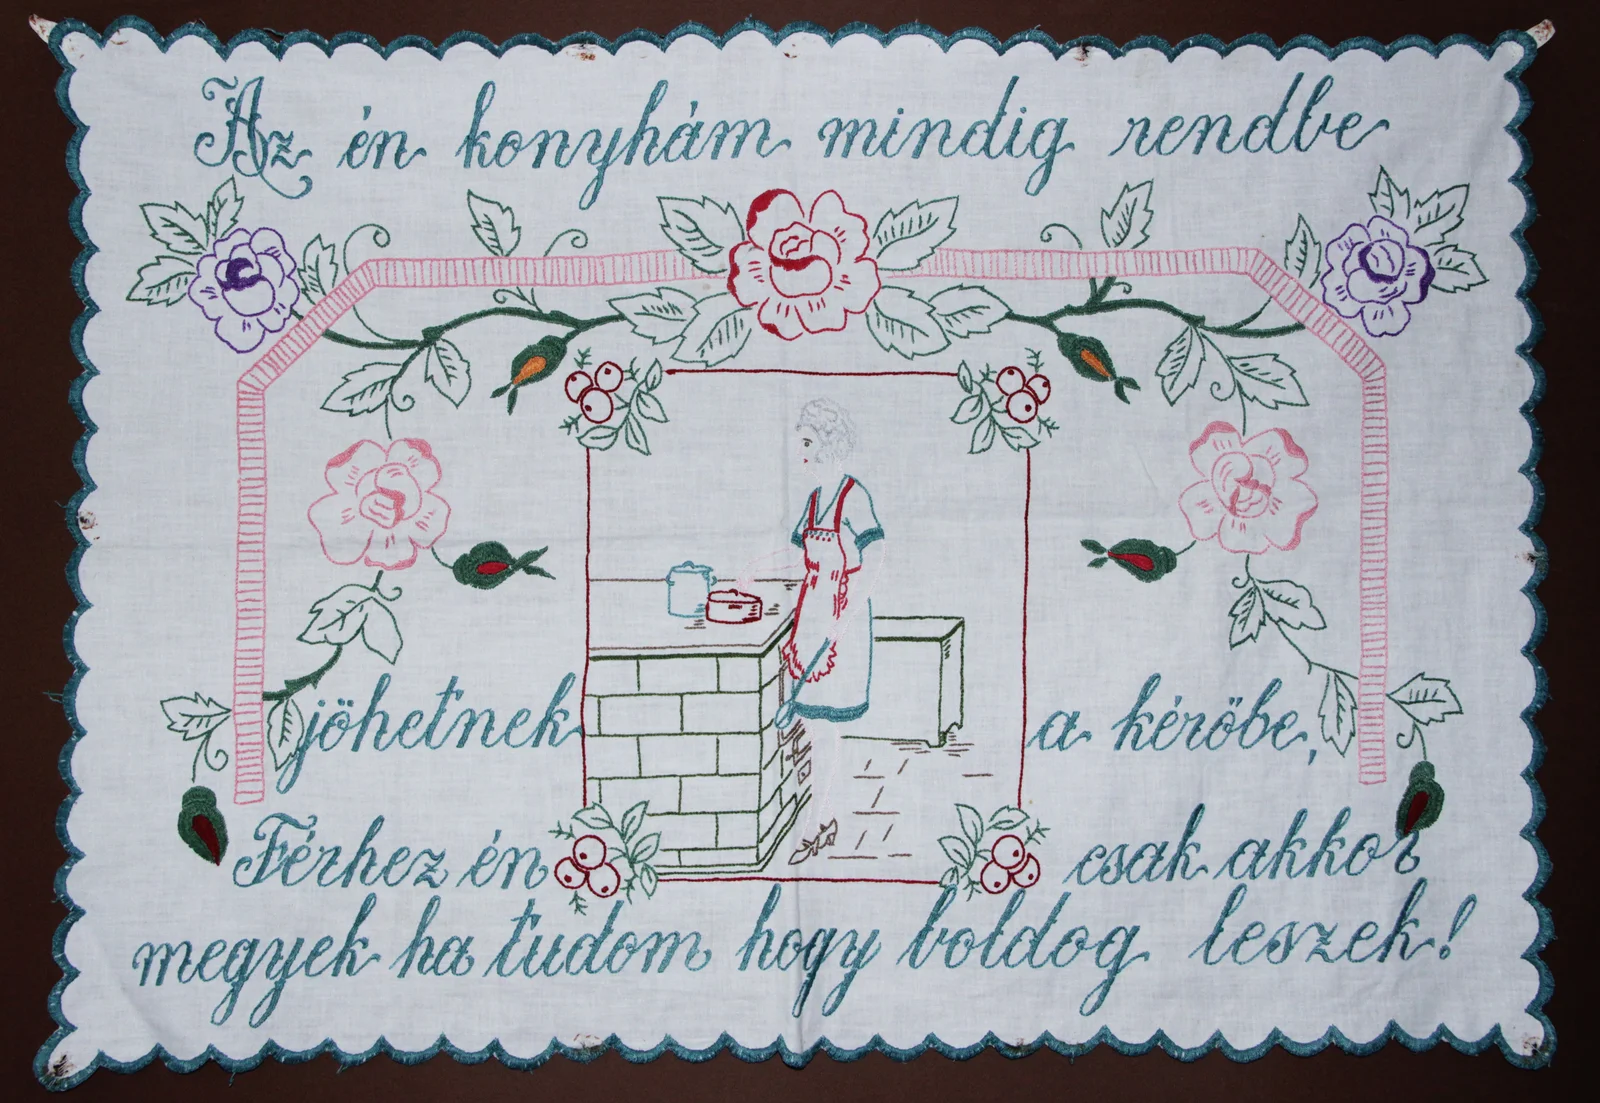 Az én konyhám mindig rendbe
jöhetnek a kérőbe,
Férhez én csak akkor
megyek ha tudom hogy boldog leszek!